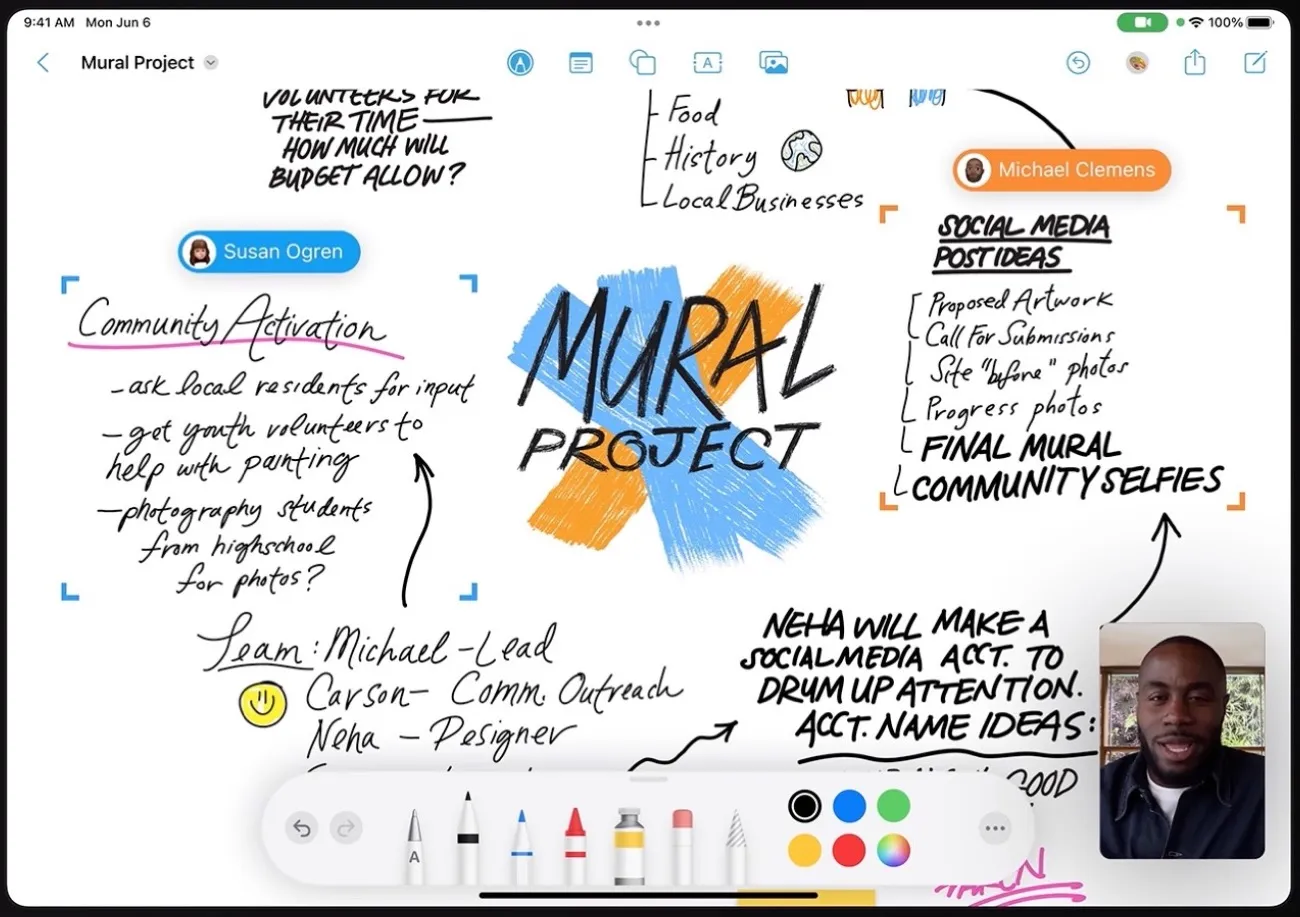 9:41 AM Mon Jun 6
100%
Mural Project
A
VOLUNTEERS FOR
THEIR TIME —
HOW MUCH WILL
BUDGET ALLOW?
Food
History
Local Businesses
Michael Clemens
SOCIAL MEDIA
POST IDEAS
Proposed Artwork
Call For Submissions
Site "before" photos
Progress photos
FINAL MURAL
COMMUNITY SELFIES
Susan Ogren
Community Activation
- ask local residents for input
- get youth volunteers to
help with painting
- photography students
from highschool
for photos?
MURAL
PROJECT
Team: Michael - Lead
Carson - Comm. Outreach
Neha - Designer
NEHA WILL MAKE A
SOCIAL MEDIA ACCT. TO
DRUM UP ATTENTION.
ACCT. NAME IDEAS:
GOOD
A